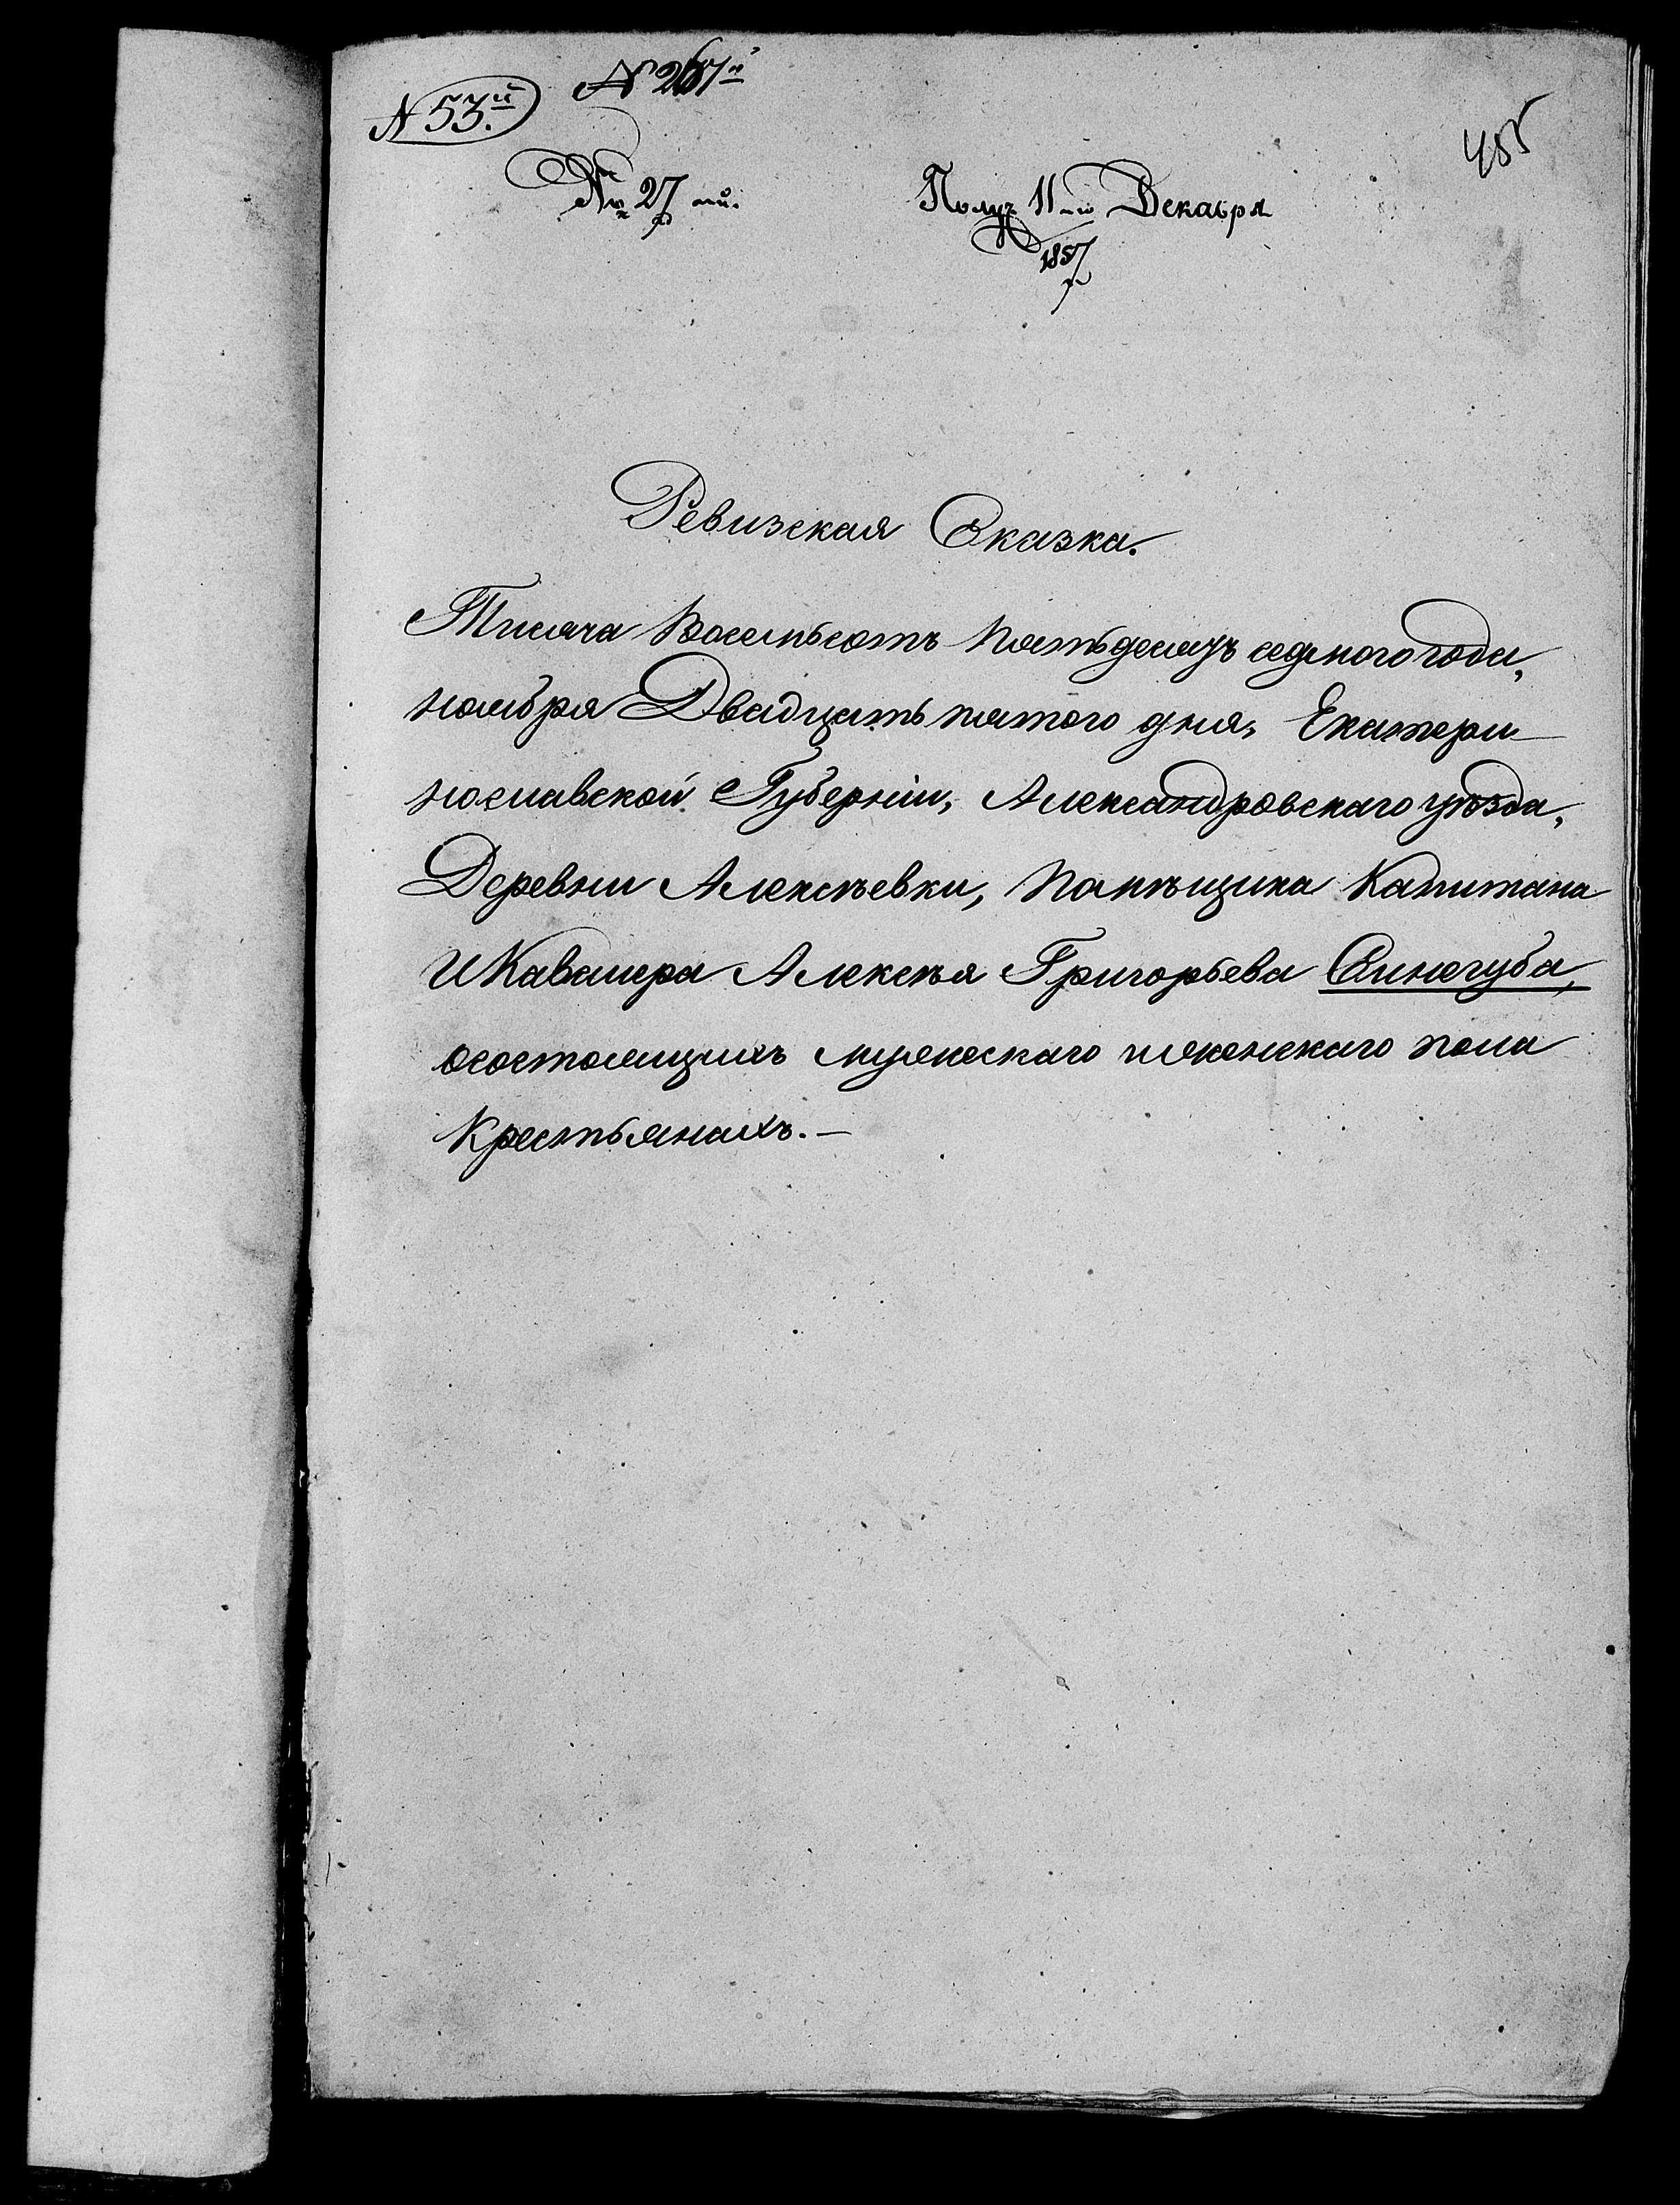 N 53.й
N 267й
485
№ 27 ой.
Получ 11-го Декабря
1857
Ревизская Сказка.
Тисяча Восемьсотъ Пятьдесятъ седмого года,
ноября Двадцать пятого дня, Екатери
нославской Губерніи, Александровскаго уѣзда,
Деревни Алексѣевки, Помѣщика Капитана
И Кавалера Алексѣя Григорьева Синегуба,
осостоящихъ мужескаго иженскаго пола
Крестьянахъ. —